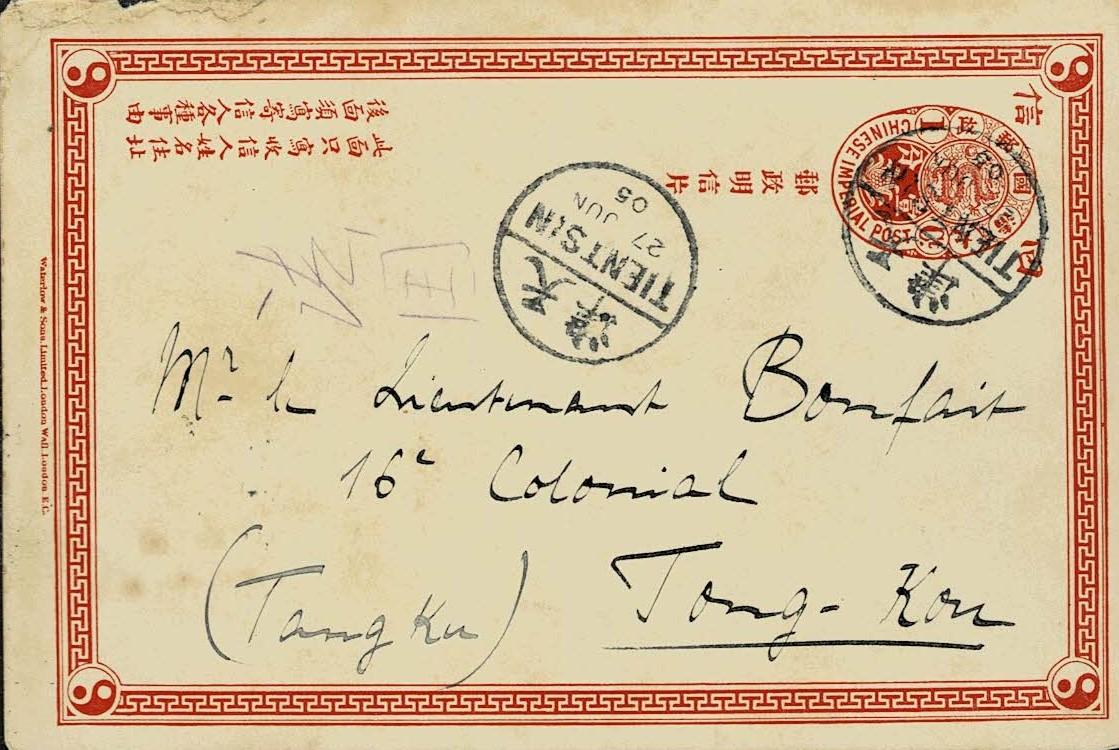 此面只寫收信人姓名住址
後面須寫寄信人各種事由
郵政明信片
CHINESE IMPERIAL POST
1
天津
TIENTSIN
27
JUN
05
天津
TIENTSIN
05
Mr le Lieutenant Bonfait
16e Colonial
Tong-Kou
(Tangku)
Waterlow & Sons, Limited, London Wall, London. E.C.